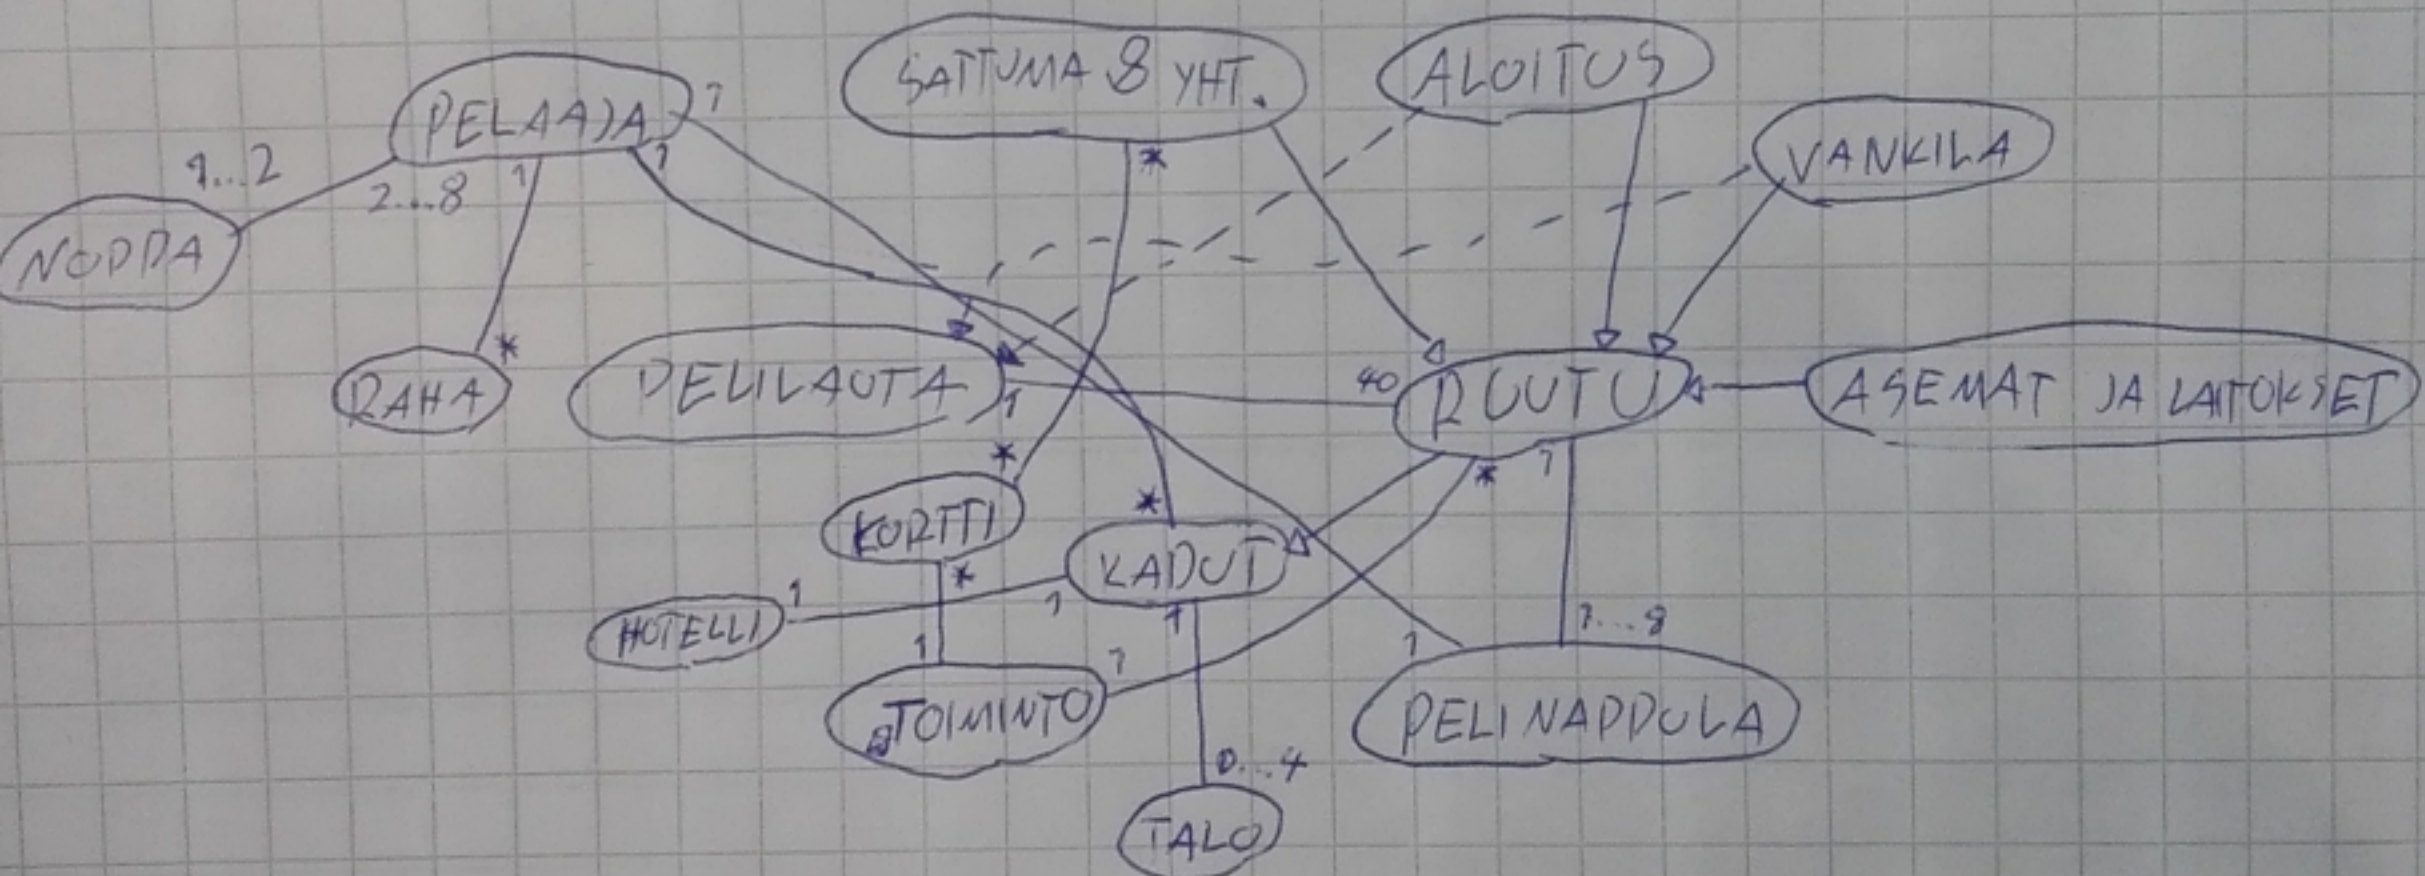 SATTUMA & YHT.
ALOITUS
PELAAJA
1
VANKILA
1...2
2...8
1
1
*
NOPPA
RAHA
*
PELILAUTA
1
40
RUUTU
ASEMAT JA LAITOKSET
*
*
*
1
KORTTI
*
KADUT
HOTELLI
1
1
1
1
1
1
1...8
TOIMINTO
PELINAPPULA
0...4
TALO